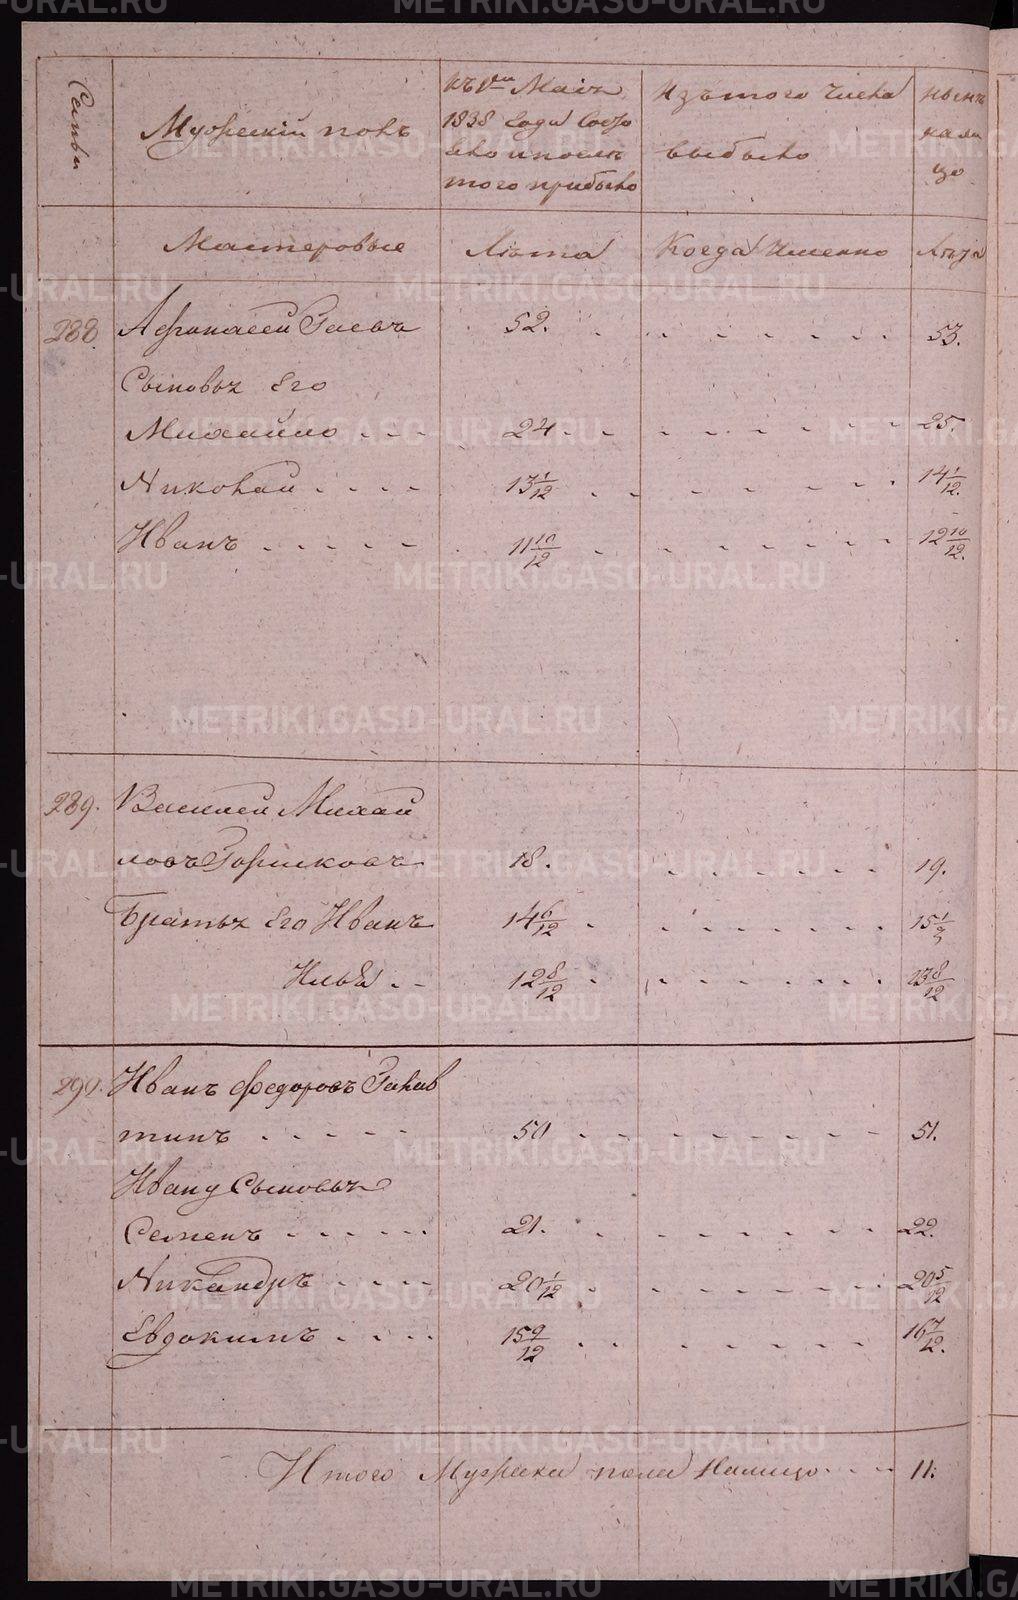 Семьи
Мужескій полъ
Къ 1му Маія
1838 года Состо
яло и после
того прибыло
Изътого числа
выбыло
Нынѣ
нали
цо
Мастеровые
Лѣта
Когда Именно
Лѣта
288. Афонасей 52. 53.
Сыновья Его
Михайло 24 25.
Николай 13 1/12 14 1/12.
Иванъ 11 10/12 12 10/12.
289. Василей Михай
ловъ Горшковъ 18. 19.
Братья Его Иванъ 14 6/12 15 1/2
Илья 12 8/12 13 8/12
290. Иванъ Федоровъ Галак
тинъ 50 51.
Ивану Сыновья
Семенъ 21. 22.
Никандръ 20 1/12 20 5/12
Евдокимъ 15 9/12 16 7/12.
Итого Мужеска пола Налицо 11:
METRIKI.GASO-URAL.RU